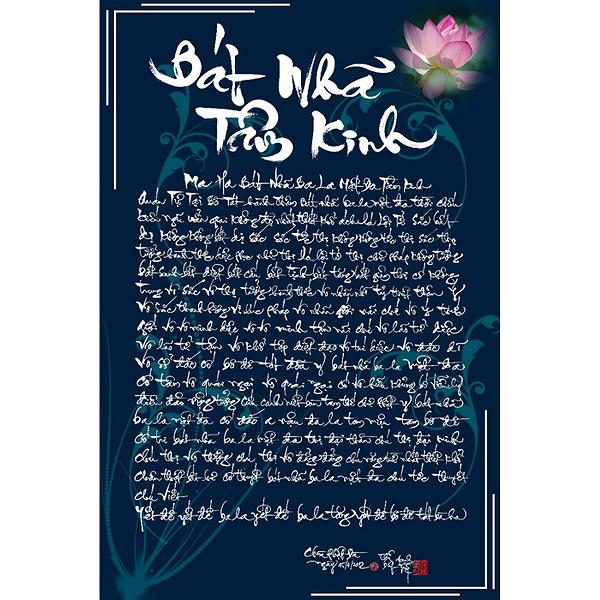 Bát Nhã
Tâm Kinh
Ma Ha Bát Nhã Ba La Mật Đa Tâm Kinh
Quán Tự Tại Bồ Tát hành thâm Bát nhã ba la mật đa thời chiếu
kiến ngũ uẩn giai không độ nhất thiết khổ ách Xá Lợi Tử Sắc bất
dị không không bất dị sắc sắc tức thị không không tức thị sắc thọ
tưởng hành thức diệc phục như thị Xá Lợi Tử thị chư pháp không tướng
bất sanh bất diệt bất cấu bất tịnh bất tăng bất giảm thị cố không
trung vô sắc vô thọ tưởng hành thức vô nhãn nhĩ tỷ thiệt thân ý
vô sắc thanh hương vị xúc pháp vô nhãn giới nãi chí vô ý thức
giới vô vô minh diệc vô vô minh tận nãi chí vô lão tử diệc
vô lão tử tận vô khổ tập diệt đạo vô trí diệc vô đắc dĩ
vô sở đắc cố bồ đề tát đỏa y bát nhã ba la mật đa
cố tâm vô quái ngại vô quái ngại cố vô hữu khủng bố viễn ly
điên đảo mộng tưởng cứu cánh niết bàn tam thế chư Phật y bát nhã
ba la mật đa cố đắc a nậu đa la tam miệu tam bồ đề
cố tri bát nhã ba la mật đa thị đại thần chú thị đại minh
chú thị vô thượng chú thị vô đẳng đẳng chú năng trừ nhất thiết khổ
chân thật bất hư cố thuyết bát nhã ba la mật đa chú tức thuyết
chú viết
Yết đế yết đế ba la yết đế ba la tăng yết đế bồ đề tát bà ha